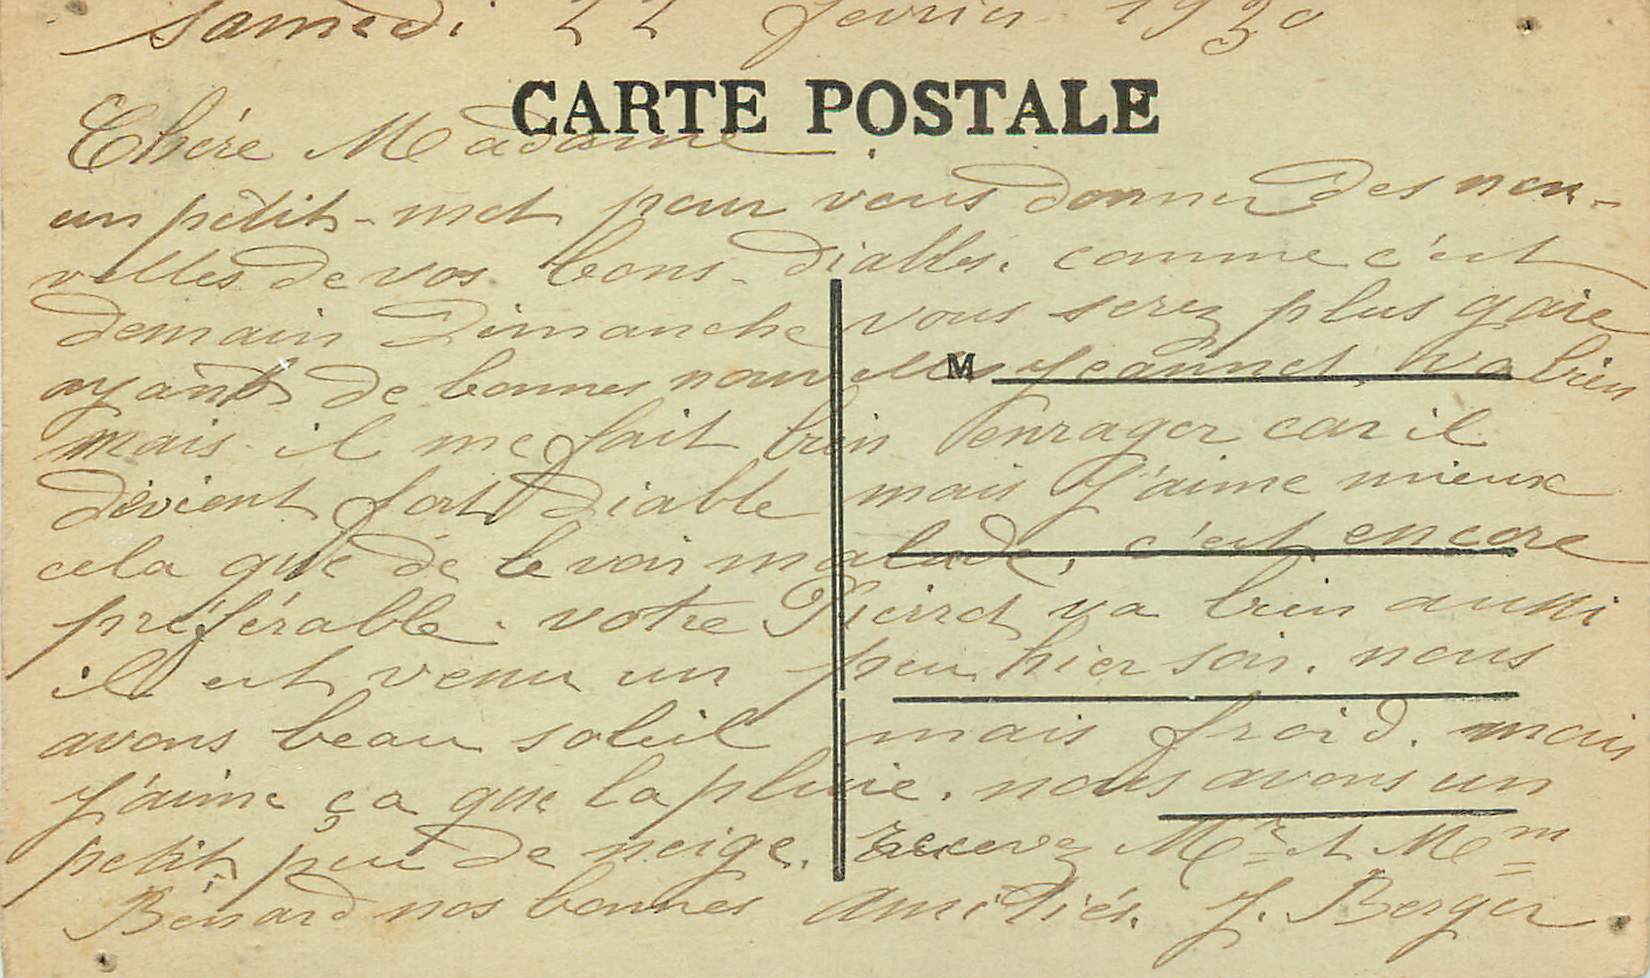 Samedi 22 février 1930
CARTE POSTALE
Chère Madame.
un pétit-mot pour vous donner des nou-
velles de vos bons diables. comme c'est
demain Dimanche vous serez plus gaie
ayant de bonnes nouvelles Jeannot va bien
M
mais il me fait bien enrager car il
dévient fort diable mais J'aime mieux
cela que de le voir malade, c'est encore
préférable. votre Pierrot va bien aussi
il est venu un peu hier soir. nous
avons beau soleil mais froid. mais
J'aime ça que la pluie. nous avons un
petit peu de neige. recevez Mr et Mem
Bénard nos bonnes amitiés. J. Berger